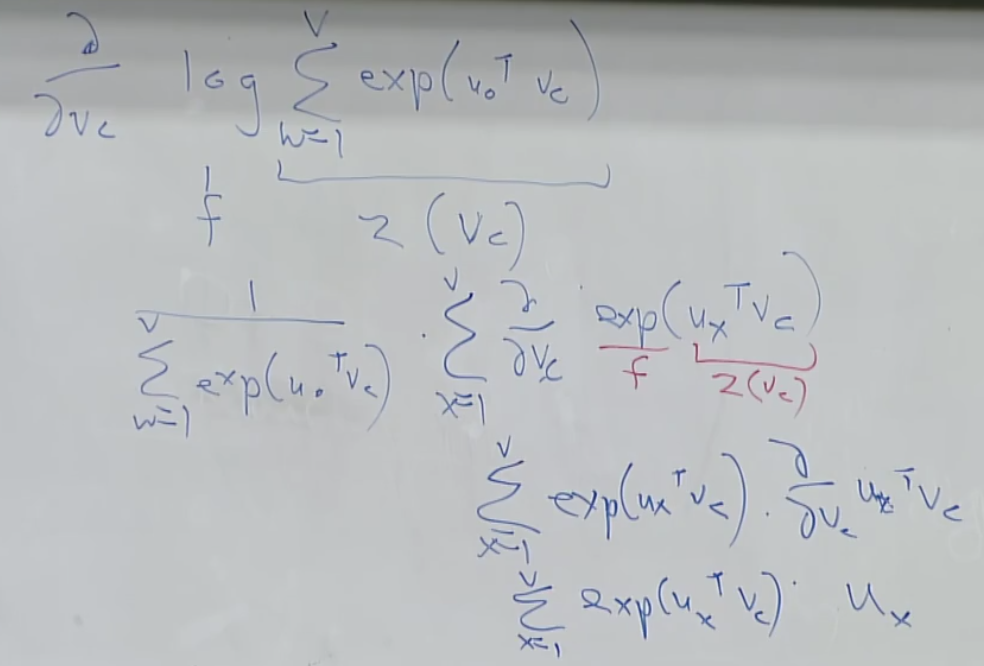 ∂/∂v_c log ∑_{w=1}^{V} exp(u_o^T v_c)
f z(v_c)
1/(∑_{w=1}^{V} exp(u_o^T v_c)) · ∑_{x=1}^{V} ∂/∂v_c exp(u_x^T v_c)
f z(v_c)
∑_{x=1}^{V} exp(u_x^T v_c) · ∂/∂v_c u_x^T v_c
∑_{x=1}^{V} exp(u_x^T v_c) · u_x